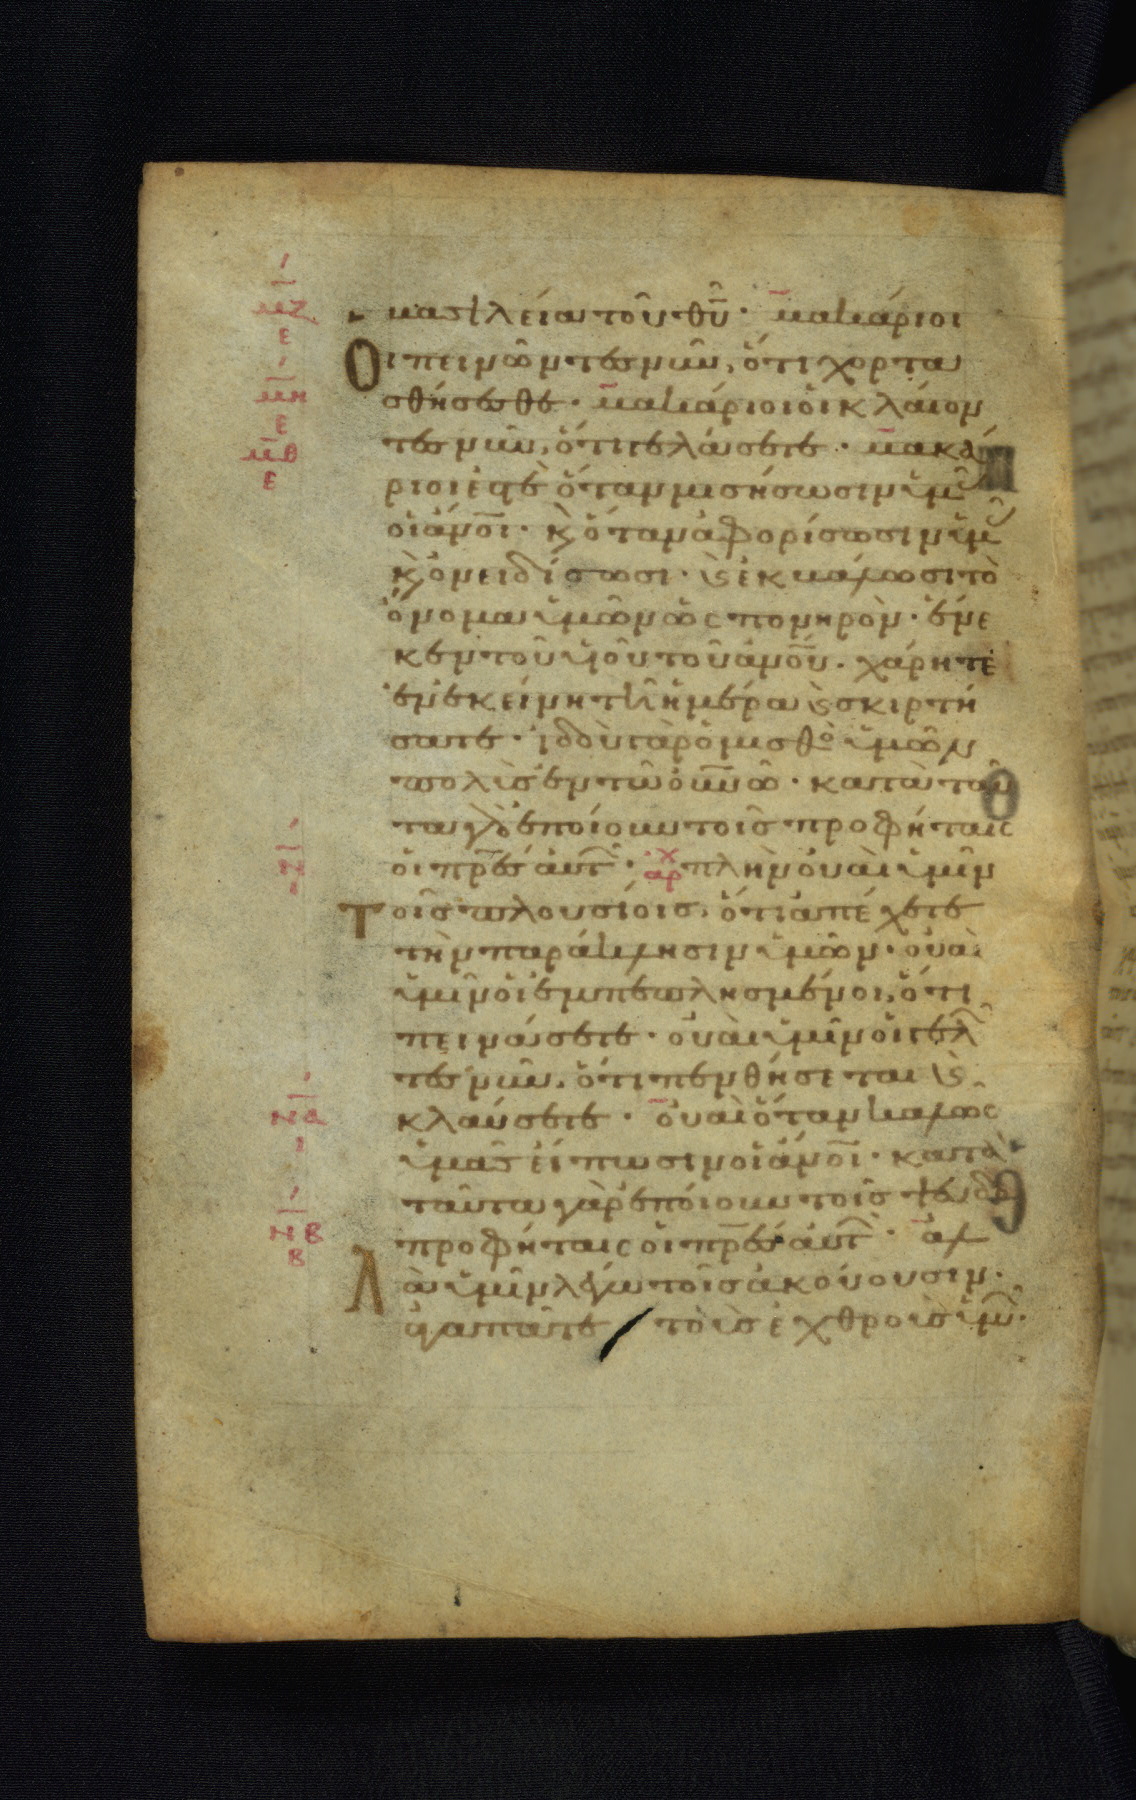 βασιλεία τοῦ θῦ· μακάριοι
οἱ πεινῶντες νῦν, ὅτι χορτα
σθήσεσθε· μακάριοι οἱ κλαίον
τες νῦν, ὅτι γελάσετε· μακά
ριοί ἐστε ὅταν μισήσωσιν ὑμ
οἱ ἄνοι· κ ὅταν ἀφορίσωσιν ὑμ
κ ὀνειδίσωσι· κ ἐκβάλωσι τὸ
ὄνομα ὑμῶν ὡς πονηρὸν· ἕνε
κεν τοῦ υἱοῦ τοῦ ἀνου· χάρητε
ἐν ἐκείνη τῆ ἡμέρα κ σκιρτή
σατε· ἰδοὺ γὰρ ὁ μισθὸ ὑμῶν
πολὺς ἐν τῶ οὐνῶ· κατὰ ταῦ
τα γὰρ ἐποίουν τοῖς προφήταις
οἱ πρες αὐτ· αρχ πλὴν οὐαὶ ὑμῖν
τοῖς πλουσίοις, ὅτι ἀπέχετε
τὴν παράκλησιν ὑμῶν· οὐαὶ
ὑμῖν οἱ ἐμπεπλησμένοι, ὅτι
πεινάσετε· οὐαι ὑμῖν οἱ γελ
τες νῦν, ὅτι πενθήσεται κ
κλαύσετε· οὐαὶ ὅταν καλῶς
ὑμᾶς εἴπωσιν οἱ ἄνοι· κατὰ
ταῦτα γὰρ ἐποίουν τοῖς ψευδο
προφήταις οἱ πρες αὐτ· ἀλ
λὰ ὑμῖν λέγω τοῖς ἀκούουσιν·
ἀγαπᾶτε τοὶς ἐχθροὶς ὑμῶν·
μζ
ε
μη
ε
μθ
ε
ν
να
ι
νβ
β